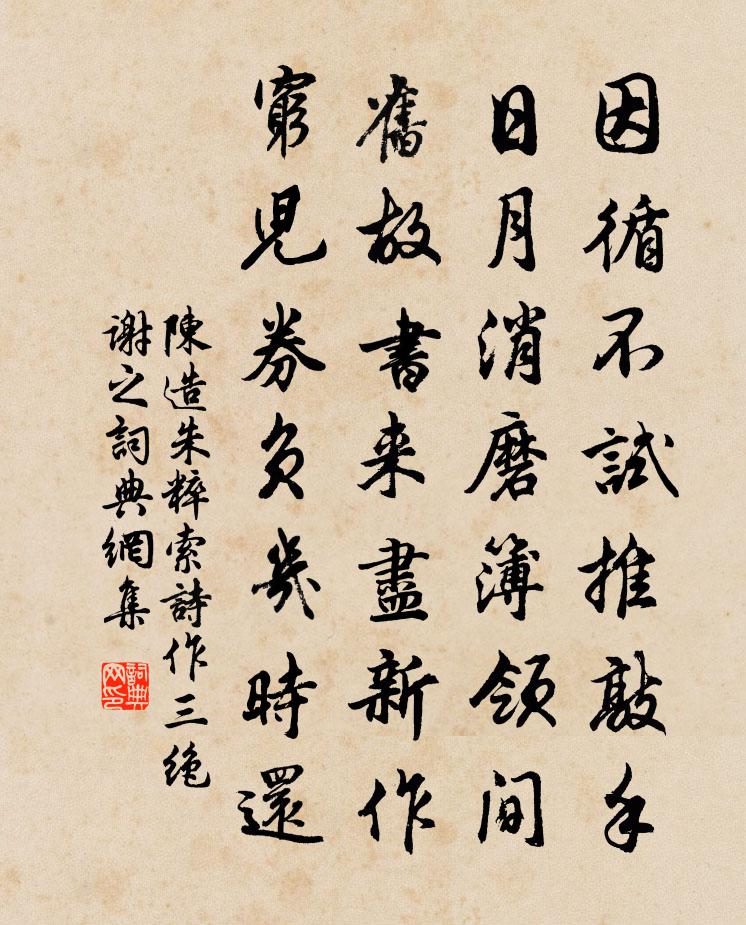 因循不試推敲手
日月消磨簿領間
舊故書来盡新作
窮児券負幾時還
陳造朱粹索詩作三絶
謝之詞典網集
詞典
网印